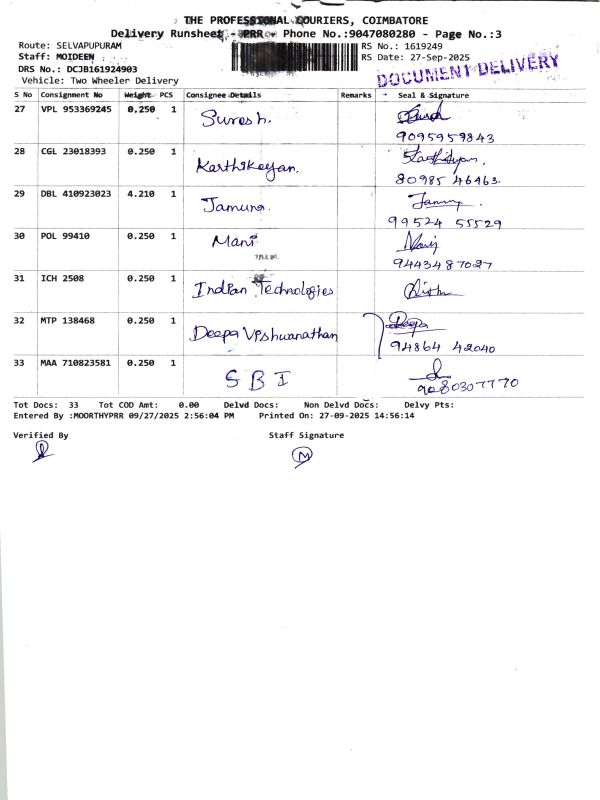 THE PROFESSIONAL COURIERS, COIMBATORE
Delivery Runsheet - PRR - Phone No.:9047080280 - Page No.:3
Route: SELVAPUPURAM RS No.: 1619249
Staff: MOIDEEN RS Date: 27-Sep-2025
DRS No.: DCJB161924903
Vehicle: Two Wheeler Delivery
DOCUMENT DELIVERY
S No Consignment No Weight PCS Consignee Details Remarks Seal & Signature
27 VPL 953369245 0.250 1 Suresh. 9095959843
28 CGL 23018393 0.250 1 Karthikeyan. Karthikeyan. 80985 46463
29 DBL 410923023 4.210 1 Jamuna. 99524 55529
30 POL 99410 0.250 1 Mani 9443487027
31 ICH 2508 0.250 1 Indian Technologies
32 MTP 138468 0.250 1 Deepa Vishwanathan Deepa 94864 42040
33 MAA 710823581 0.250 1 SBI 9080307770
Tot Docs: 33 Tot COD Amt: 0.00 Delvd Docs: Non Delvd Docs: Delvy Pts:
Entered By :MOORTHYPRR 09/27/2025 2:56:04 PM Printed On: 27-09-2025 14:56:14
Verified By Staff Signature
M